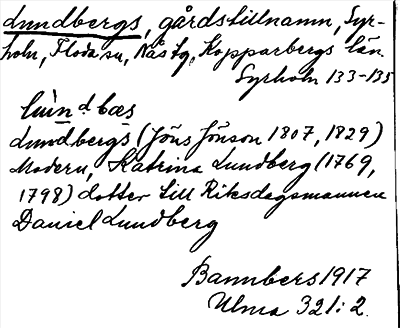 Lundbergs, gårdstillnamn, Syr-
holn, Floda sn, Nås tg, Kopparbergs län
Syrholn 133-135
lùn d. bæs
Lundbergs (Jöns Jönson 1807, 1829)
Modern, Katrina Lundberg (1769,
1798) dotter till Riksdagsmannen
Daniel Lundberg
Bannbers 1917
Ulma 321:2.